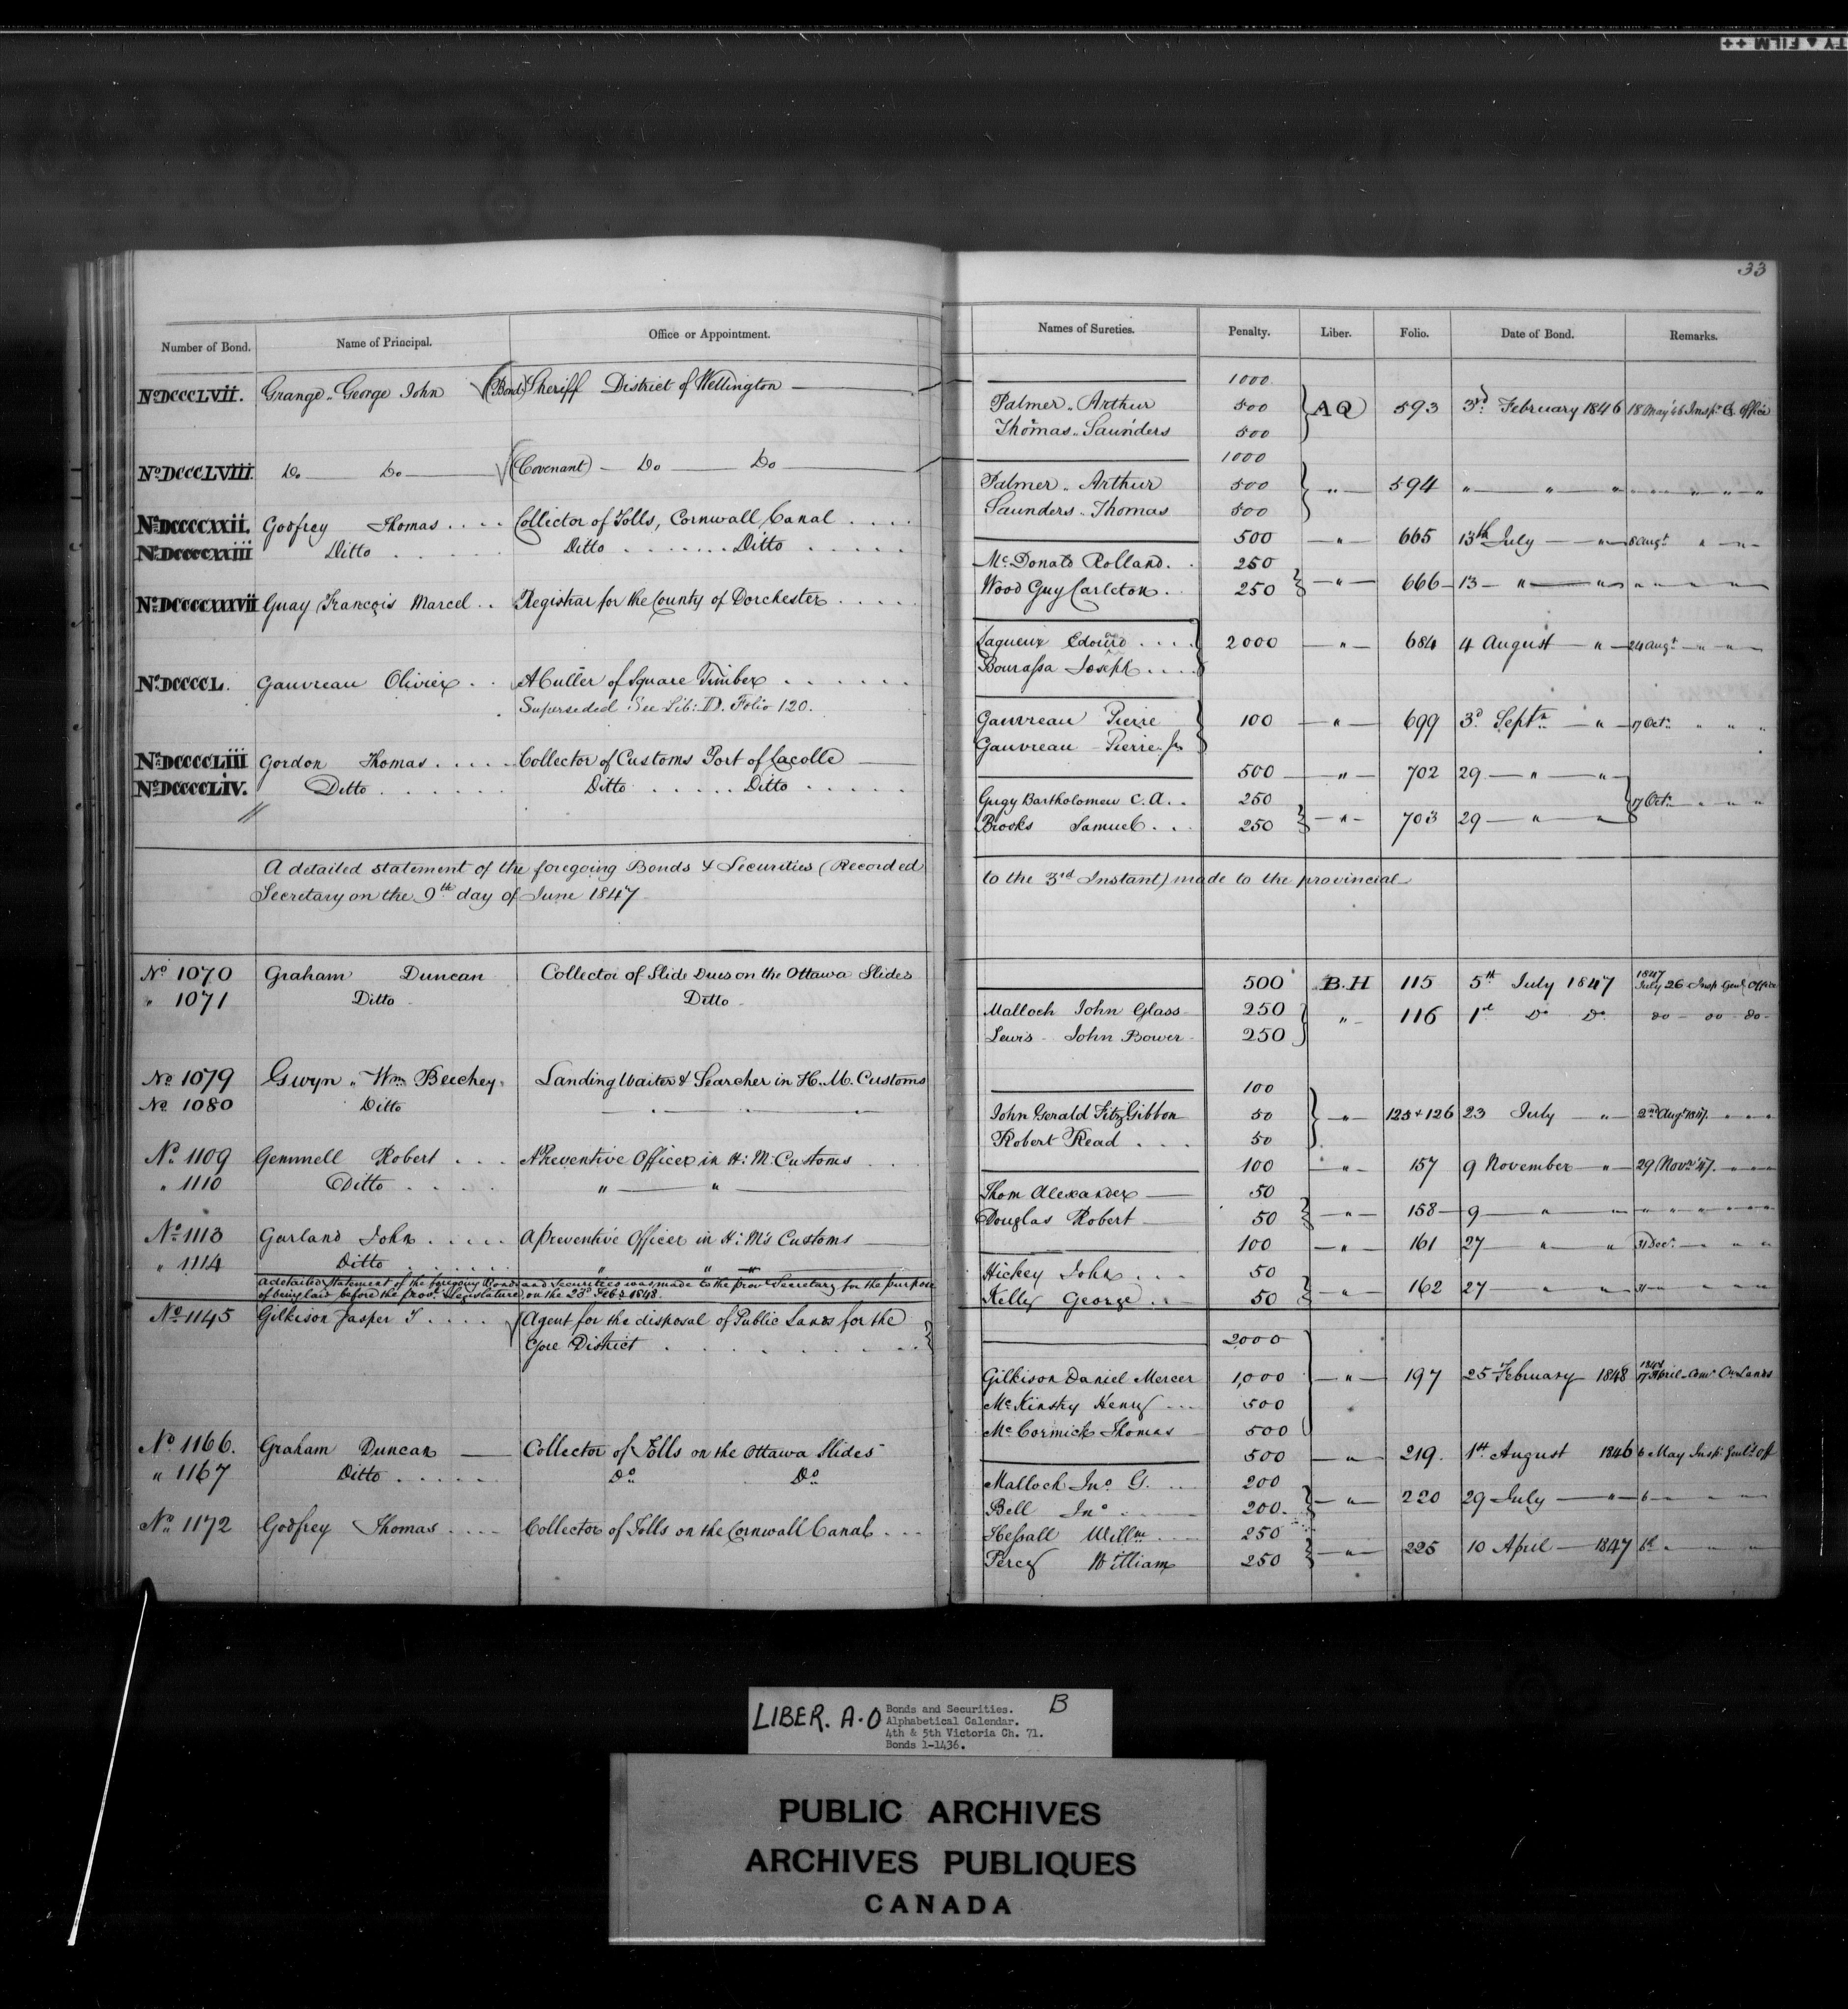 TY ▲ FILM ++
33
Number of Bond. Name of Principal. Office or Appointment. Names of Sureties. Penalty. Liber. Folio. Date of Bond. Remarks.
1000
No. DCCCLVII. Grange, George John (Bond) Sheriff District of Wellington Palmer, Arthur 500 AQ 593 3rd February 1846 18 May '46 Insp. G. Office
Thomas, Saunders 500
1000
No. DCCCLVIII. Do Do (Covenant) Do Do Palmer, Arthur 500 " 594 " " " " " " " "
Saunders, Thomas 500
No. DCCCCXXII. Godfrey Thomas .... Collector of Tolls, Cornwall Canal .... 500 " 665 13th July " 8 Augt " "
No. DCCCCXXIII Ditto Ditto ....... Ditto McDonald Rolland. 250
Wood Guy Carleton. 250 " 666 13 " " " " " "
No. DCCCCXXXVII Guay François Marcel .. Registrar for the County of Dorchester ..... Laqueux Edouard .... 2000 " 684 4 August " 24 Augt " " "
Bourassa Joseph ....
No. DCCCCL. Gauvreau Olivier .. A Culler of Square Timber Gauvreau Pierre 100 " 699 3d Septr " 17 Octr " " "
Superseded See Lib: D. Folio 120. Gauvreau Pierre Jr
No. DCCCCLIII Gordon Thomas ..... Collector of Customs Port of Lacolle 500 " 702 29 " "
No. DCCCCLIV. Ditto Ditto ..... Ditto ..... Gugy Bartholomew C. A. .. 250 17 Octr " " "
Brooks Samuel ... 250 " 703 29 " "
A detailed statement of the foregoing Bonds & Securities (Recorded to the 3rd Instant) made to the provincial
Secretary on the 9th day of June 1847
No 1070 Graham Duncan Collector of Slide Dues on the Ottawa Slides 500 B.H 115 5th July 1847 1847 July 26 Insp Genl Office
" 1071 Ditto Ditto Malloch John Glass 250 " 116 1st Do Do do do do
Lewis John Bower 250
No 1079 Gwyn, Wm Beechey, Landing Waiter & Searcher in H. M. Customs 100
No. 1080 Ditto John Gerald FitzGibbon 50 " 125 + 126 23 July " 2nd Augt 1847. " " "
Robert Read ... 50
No. 1109 Gemmell Robert ... A Preventive Officer in H: M: Customs 100 " 157 9 November " 29 Novr '47. " " "
" 1110 Ditto " " Thom Alexander 50
Douglas Robert 50 " 158 9 " " " " " "
No. 1113 Garland John ..... A Preventive Officer in H: M's Customs 100 " 161 27 " " 31 Decr. " " "
" 1114 Ditto " " " Hickey John ... 50
Kelly George .. 50 " 162 27 " " 31 " "
A detailed Statement of the foregoing Bonds and Securities was made to the prov. Secretary for the purpose
of being laid before the provl. Legislature, on the 23d Feby 1848.
No. 1145 Gilkison Jasper T .... Agent for the disposal of Public Lands for the 2000
Gore District Gilkison Daniel Mercer 1,000 " 197 25 February 1848 1848 17 April Comr Cn Lands
McKinsky Henry ... 500
McCormick Thomas 500
No. 1166. Graham Duncan Collector of Tolls on the Ottawa Slides 500 " 219. 1st August 1846 6 May Insp. Genl's Off
" 1167 Ditto ..... Do Do Malloch Jno G. ... 200
Bell Jno 200. " 220 29 July " 6 " "
No. 1172 Godfrey Thomas .... Collector of Tolls on the Cornwall Canal ... Hessall Willm 250
Percy William 250 " 225 10 April 1847 6th " "
LIBER. A.O Bonds and Securities. B
Alphabetical Calendar.
4th & 5th Victoria Ch. 71.
Bonds 1-1436.
PUBLIC ARCHIVES
ARCHIVES PUBLIQUES
CANADA